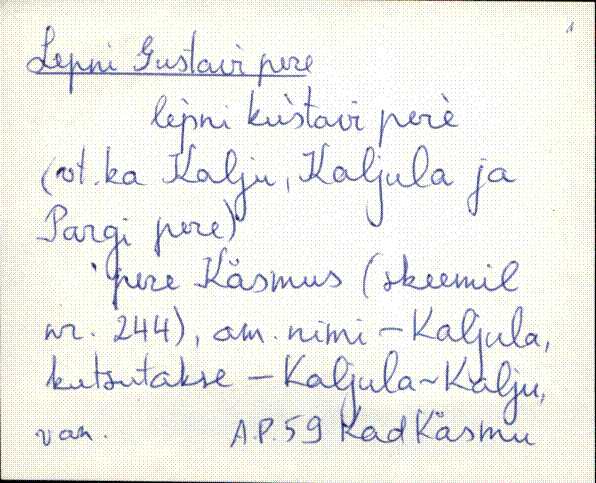 Lepni Gustavi pere
lèpni kùstavi perè
(vt. ka Kalju, Kaljula ja
Pargi pere)
pere Käsmus (skeemil
nr. 244), am. nimi – Kaljula,
kutsutakse – Kaljula ~ Kalju,
van. A.P. 59 Kad Käsmu